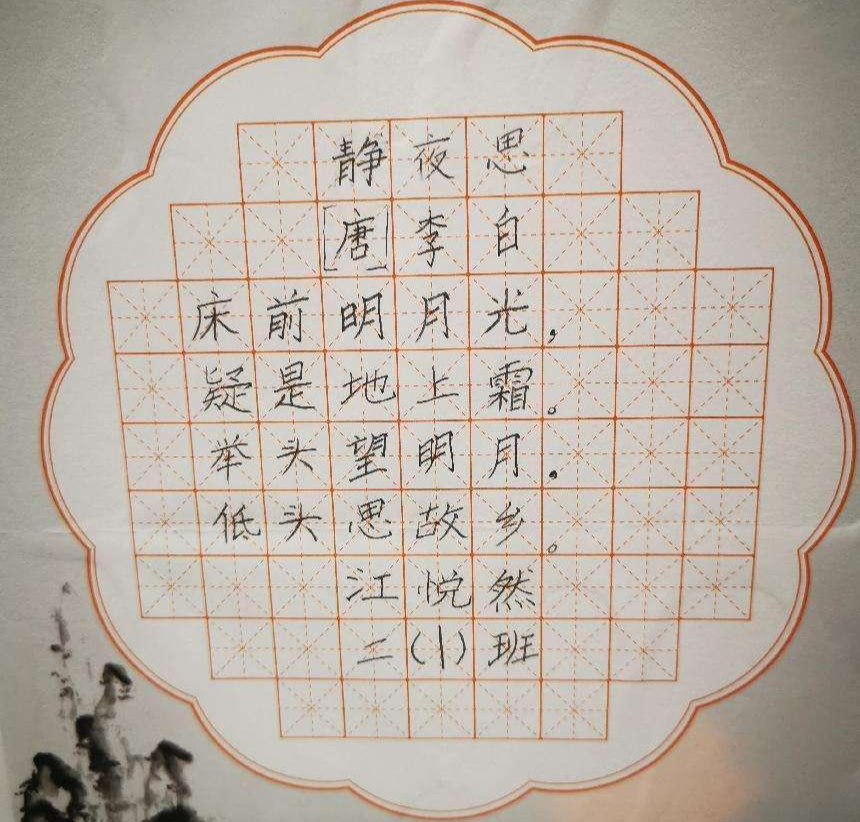 静夜思
[唐]李白
床前明月光，
疑是地上霜。
举头望明月，
低头思故乡。
江悦然
二(1)班